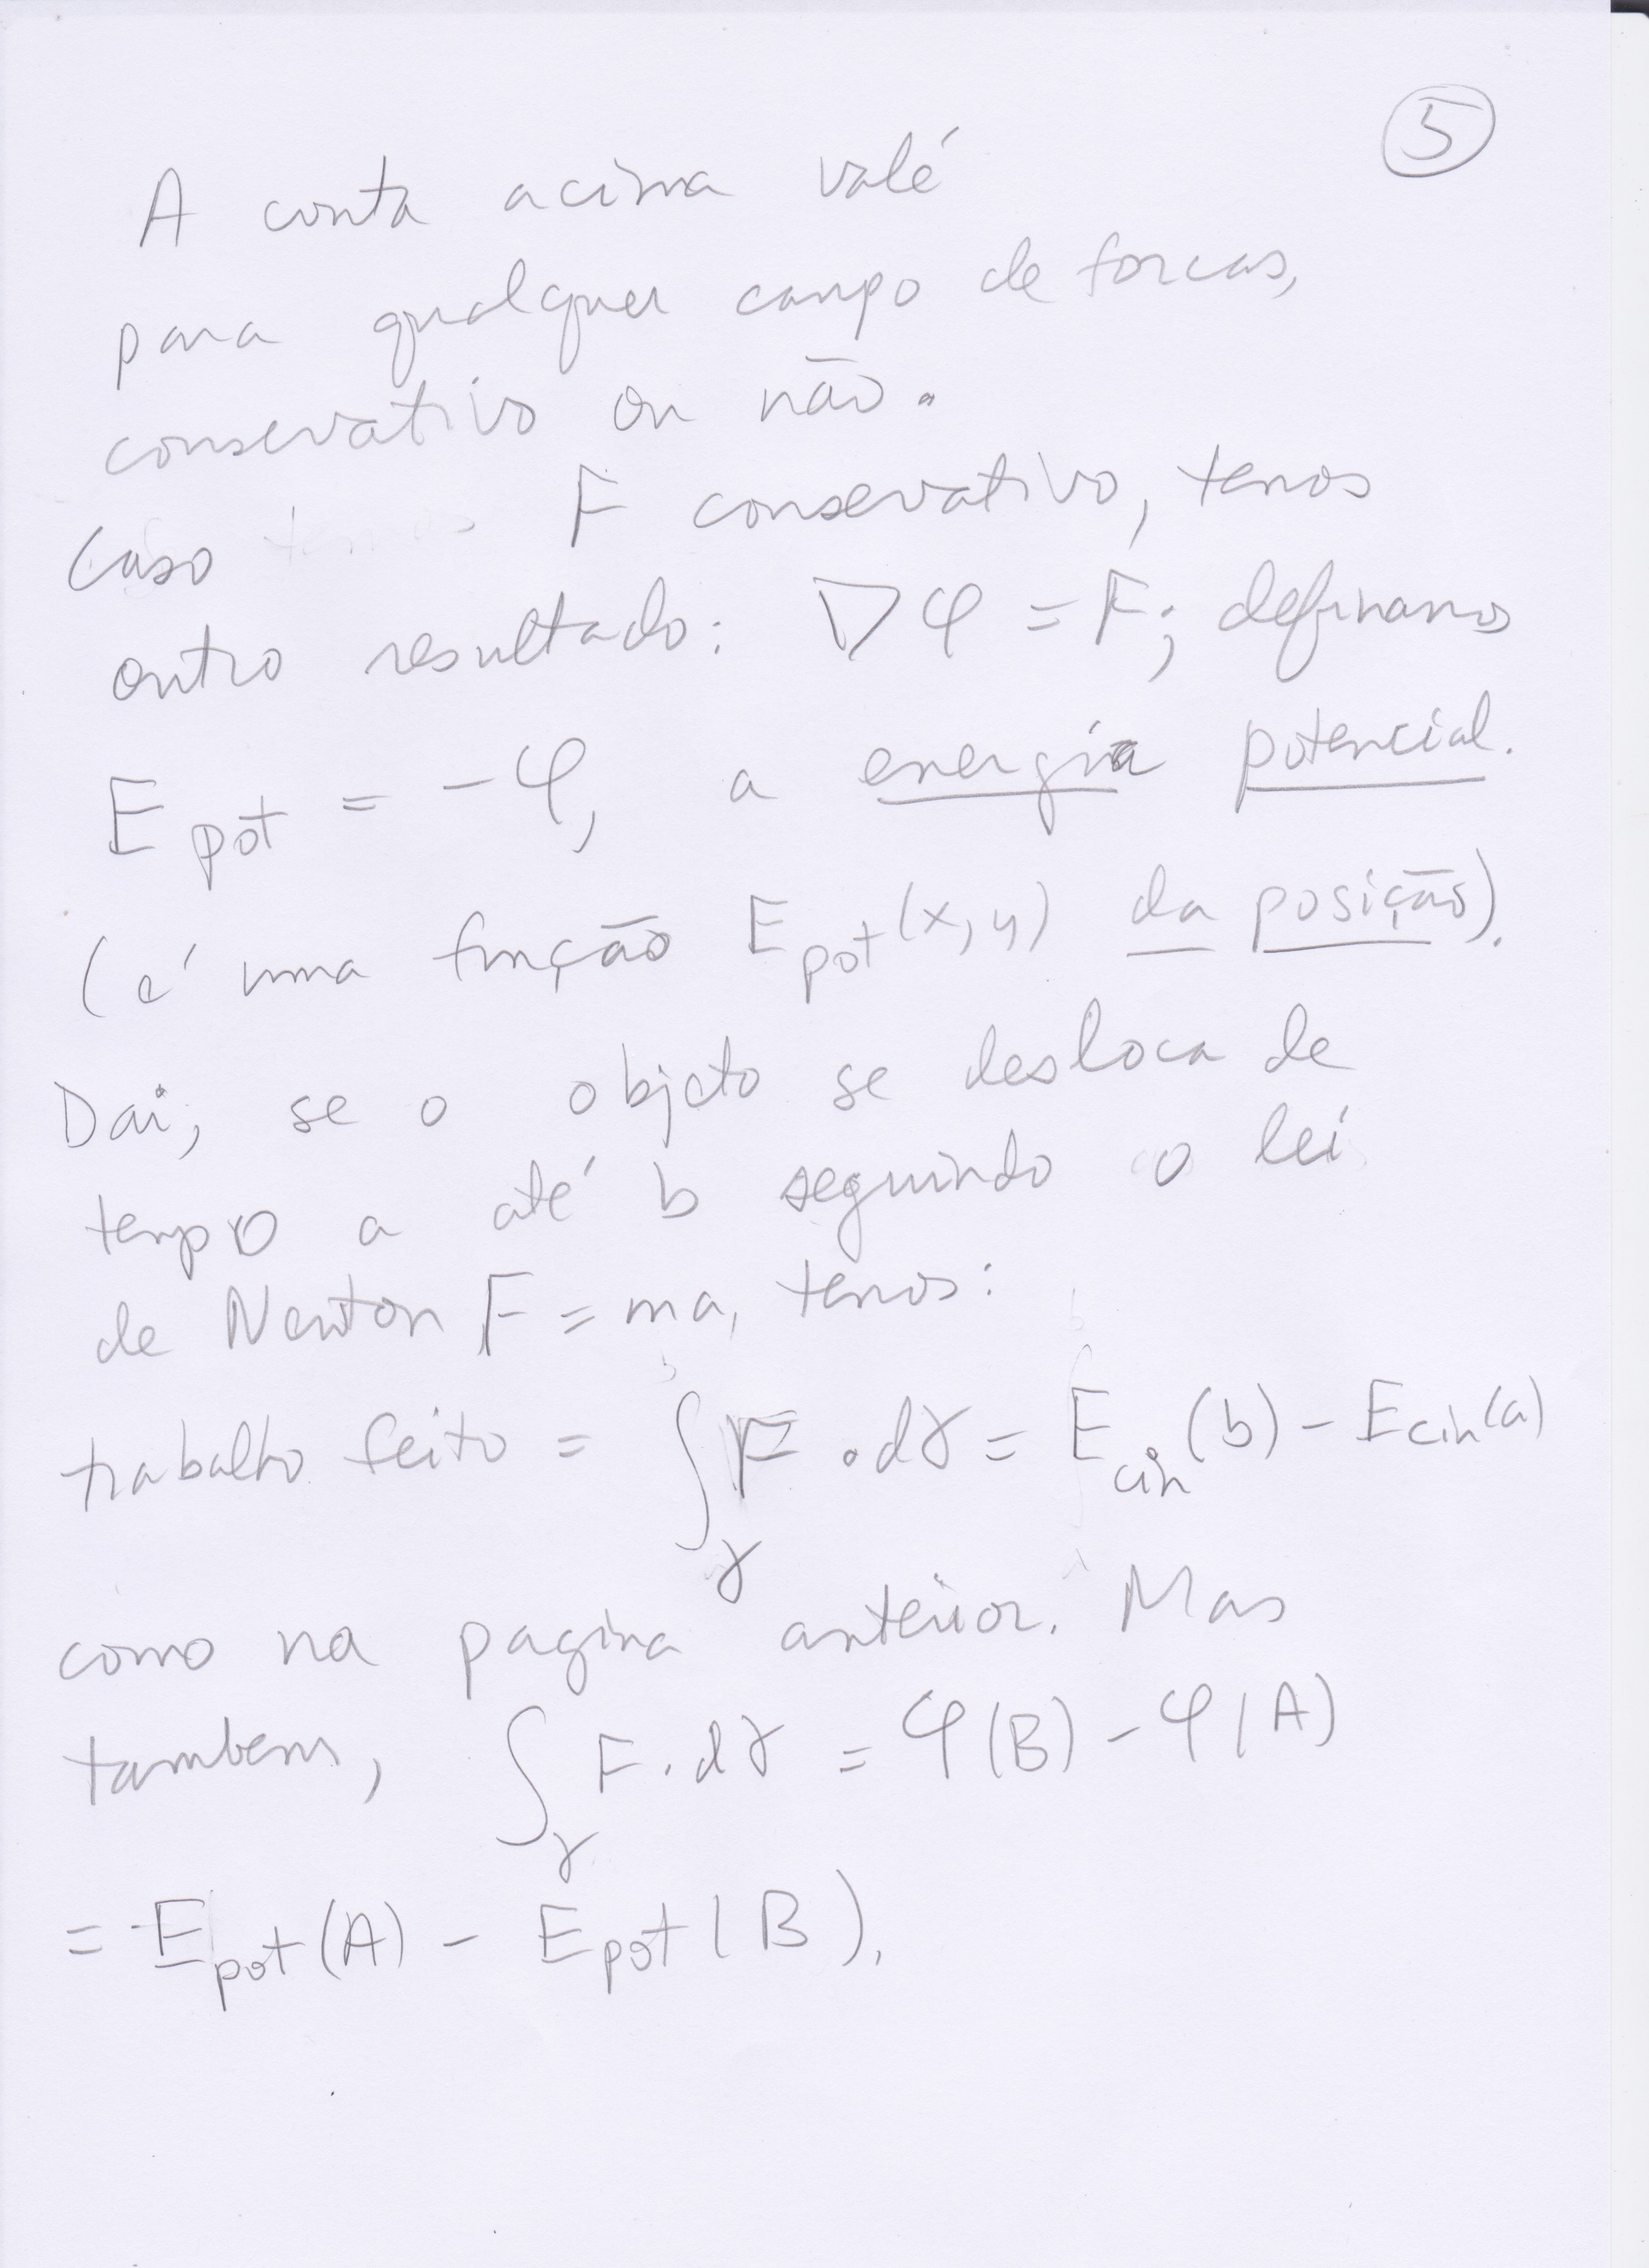 5
A conta acima valé
para qualquer campo de forcas,
conservativo ou não.
Caso F conservativo, temos
outro resultado: ∇φ = F; definamos
E_pot = -φ, a energia potencial.
(é uma função E_pot(x,y) da posição).
Daí, se o objeto se desloca de
tempo a até b seguindo o lei
de Newton F = ma, temos:
trabalho feito = ∫_γ F · dγ = E_cin(b) - E_cin(a)
como na pagina anterior. Mas
tambem, ∫_γ F · dγ = φ(B) - φ(A)
= E_pot(A) - E_pot(B).